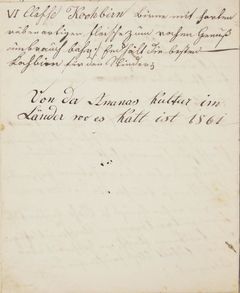 VI Classe Kochbirn Birne mit harten
rübenartigen fleische zum rohen Genuß
unbrauchbahr Enthält die besten
Kochbirn für den Winter
Von da Ananas kultur im
Länder wo es Kalt ist 1861